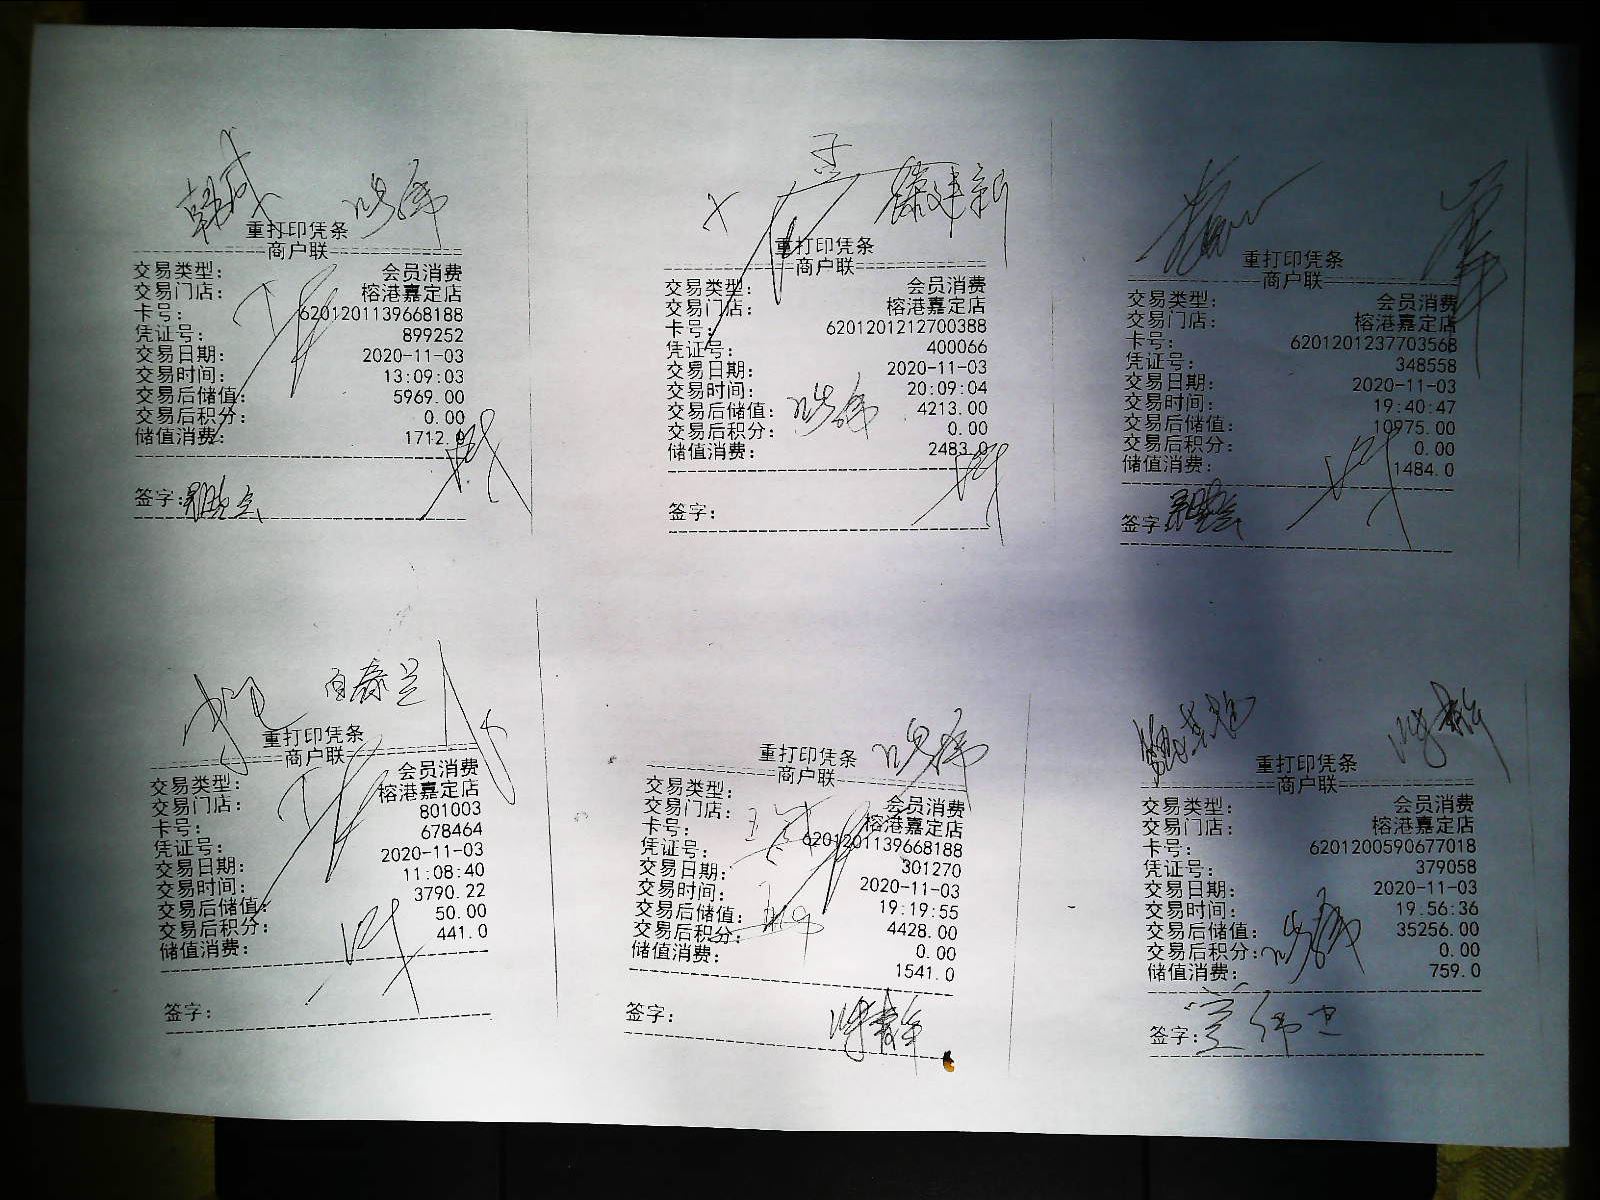 重打印凭条
商户联
交易类型： 会员消费
交易门店： 榕港嘉定店
卡号： 6201201139668188
凭证号： 899252
交易日期： 2020-11-03
交易时间： 13:09:03
交易后储值： 5969.00
交易后积分： 0.00
储值消费： 1712.0
签字：
滕建新
重打印凭条
商户联
交易类型： 会员消费
交易门店： 榕港嘉定店
卡号： 6201201212700388
凭证号： 400066
交易日期： 2020-11-03
交易时间： 20:09:04
交易后储值： 4213.00
交易后积分： 0.00
储值消费： 2483.0
签字：
重打印凭条
商户联
交易类型： 会员消费
交易门店： 榕港嘉定店
卡号： 6201201237703568
凭证号： 348558
交易日期： 2020-11-03
交易时间： 19:40:47
交易后储值： 10975.00
交易后积分： 0.00
储值消费： 1484.0
签字
重打印凭条
商户联
交易类型： 会员消费
交易门店： 榕港嘉定店
卡号： 801003
凭证号： 678464
交易日期： 2020-11-03
交易时间： 11:08:40
交易后储值： 3790.22
交易后积分： 50.00
储值消费： 441.0
签字：
重打印凭条
商户联
交易类型： 会员消费
交易门店： 榕港嘉定店
卡号： 6201201139668188
凭证号： 301270
交易日期： 2020-11-03
交易时间： 19:19:55
交易后储值： 4428.00
交易后积分： 0.00
储值消费： 1541.0
签字：
重打印凭条
商户联
交易类型： 会员消费
交易门店： 榕港嘉定店
卡号： 6201200590677018
凭证号： 379058
交易日期： 2020-11-03
交易时间： 19:56:36
交易后储值： 35256.00
交易后积分： 0.00
储值消费： 759.0
签字：